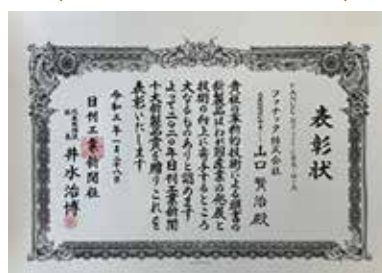 表彰状
ファナック株式会社
山口賢治殿
貴社の革新的技術による頭書の
新製品はわが国産業の発展と
技術の向上に寄与するところ
大なるものありと認めます
よって二〇二〇年日刊工業新聞
十大新製品賞を贈りこれを
表彰いたします
令和三年一月二十八日
日刊工業新聞社
井水治博